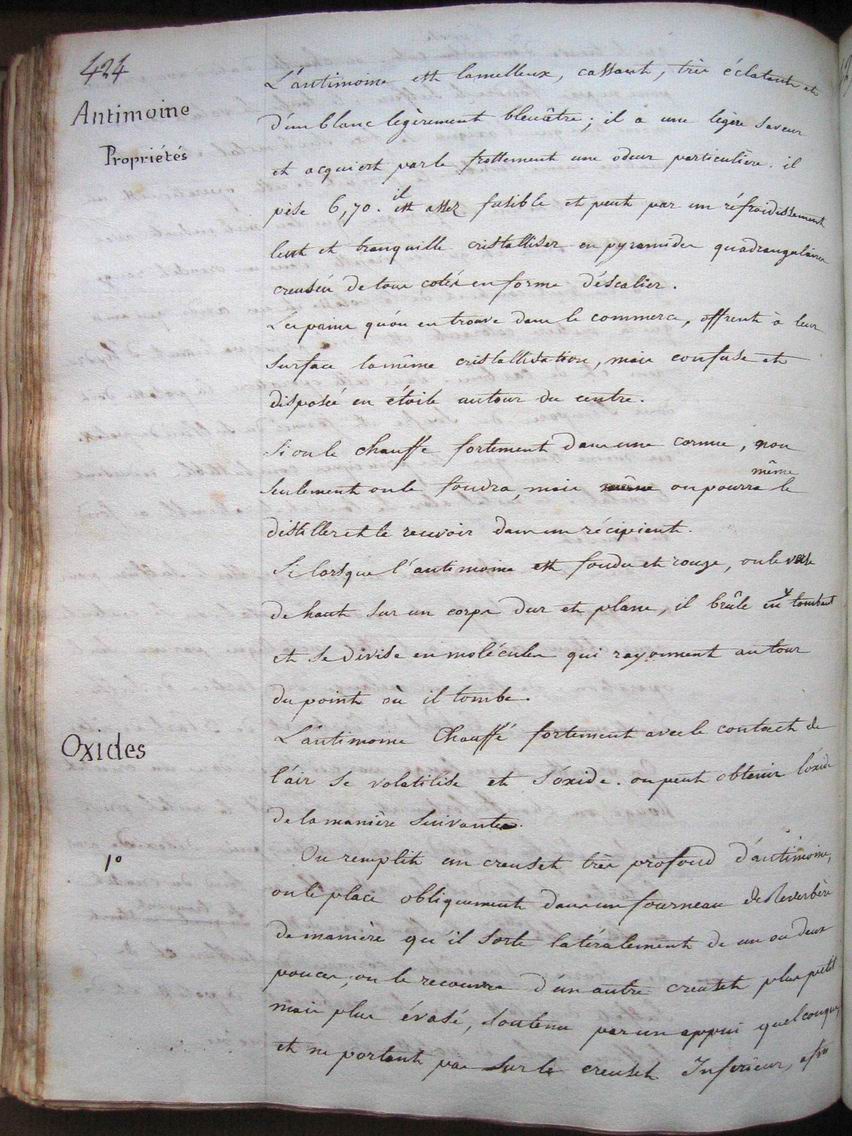 424
Antimoine
Propriétés
L'antimoine est lamelleux, cassant, très éclatant et
d'un blanc légèrement bleuâtre; il a une légère saveur
et acquiert par le frottement une odeur particulière. il
pèse 6,70. il est assez fusible et peut par un réfroidissement
lent et tranquille cristalliser en pyramides quadrangulaires
creusées de tous cotés en forme d'éscalier.
Les pains qu'on en trouve dans le commerce, offrent à leur
surface la même cristallisation, mais confuse et
disposée en étoile autour du centre.
Si on le chauffe fortement dans une cornue, non
seulement on le fondra, mais même on pourra même le
distiller et le recevoir dans un récipient.
Si lorsque l'antimoine est fondu et rouge, on le verse
de haut sur un corps dur et plane, il brûle en y tombant
et se divise en molécules qui rayonnent autour
du point où il tombe.
Oxides
L'antimoine chauffé fortement avec le contact de
l'air se volatilise et s'oxide. on peut obtenir l'oxide
de la manière suivante.
1º
On remplit un creuset très profond d'antimoine,
on le place obliquement dans un fourneau de Reverbère
de manière qu'il sorte latéralement de un ou deux
pouces, on le recouvre d'un autre creuset plus petit
mais plus évasé, soutenu par un appui quelconque,
et ne portant pas sur le creuset Inférieur, afin